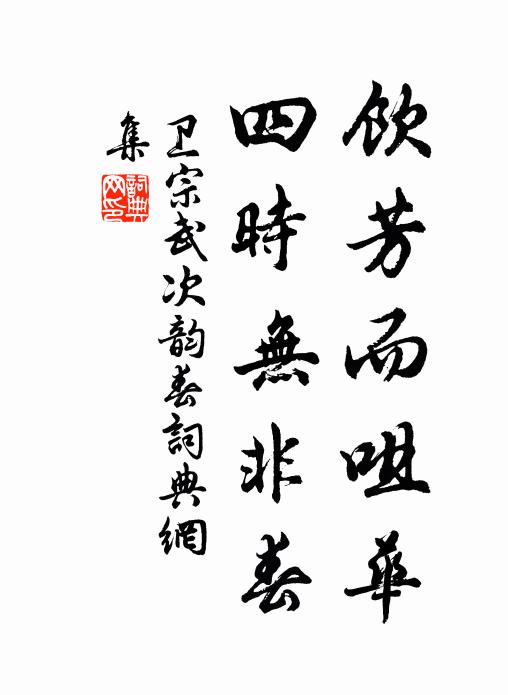 飲芳而咀華
四時無非春
卫宗武次韵春詞典網
集
詞典網印